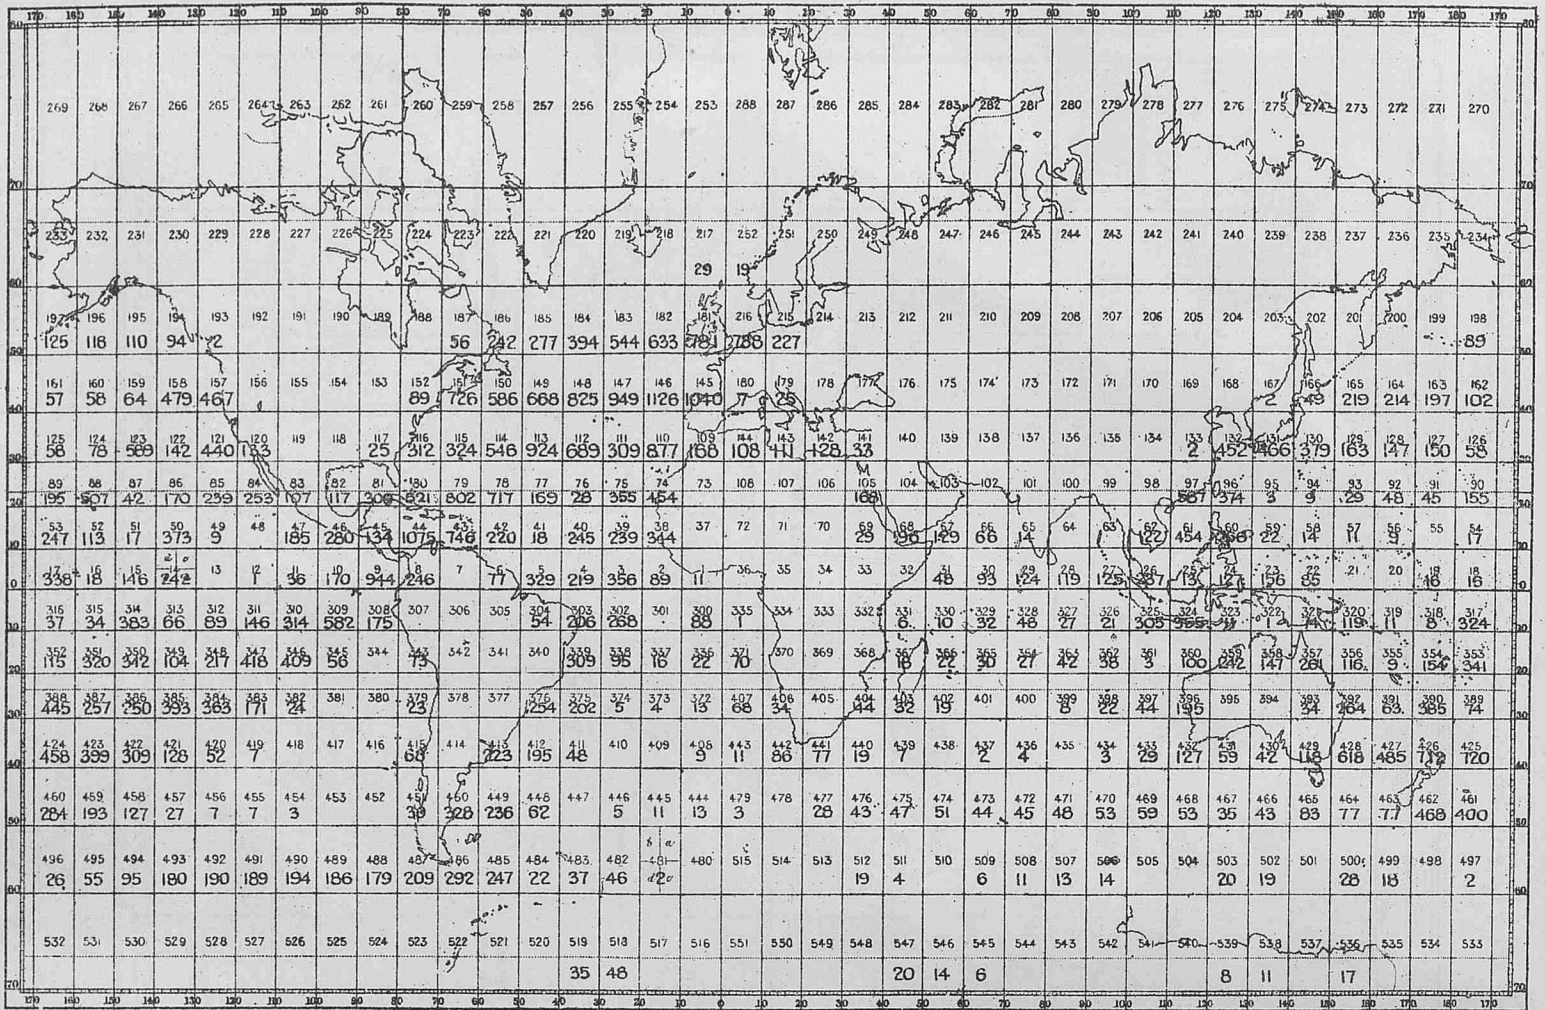 170 160 150 140 130 120 110 100 90 80 70 60 50 40 30 20 10 0 10 20 30 40 50 60 70 80 90 100 110 120 130 140 150 160 170 180 170
80 80
269 268 267 266 265 264 263 262 261 260 259 258 257 256 255 254 253 288 287 286 285 284 283 282 281 280 279 278 277 276 275 274 273 272 271 270
70 70
233 232 231 230 229 228 227 226 225 224 223 222 221 220 219 218 217 252 251 250 249 248 247 246 245 244 243 242 241 240 239 238 237 236 235 234
29 19
60 60
197 196 195 194 193 192 191 190 189 188 187 186 185 184 183 182 181 216 215 214 213 212 211 210 209 208 207 206 205 204 203 202 201 200 199 198
125 118 110 94 2 56 242 277 394 544 633 781 788 227 89
50 50
161 160 159 158 157 156 155 154 153 152 151 150 149 148 147 146 145 180 179 178 177 176 175 174 173 172 171 170 169 168 167 166 165 164 163 162
57 58 64 479 467 89 726 586 668 825 949 1126 1040 7 25 2 49 219 214 197 102
40 40
125 124 123 122 121 120 119 118 117 116 115 114 113 112 111 110 109 144 143 142 141 140 139 138 137 136 135 134 133 132 131 130 129 128 127 126
58 78 589 142 440 133 25 312 324 546 924 689 309 877 168 108 111 128 33 2 452 466 379 163 147 150 58
30 30
89 88 87 86 85 84 83 82 81 80 79 78 77 76 75 74 73 108 107 106 105 104 103 102 101 100 99 98 97 96 95 94 93 92 91 90
195 507 42 170 239 253 107 117 300 821 802 717 169 28 355 454 168 587 374 3 9 29 48 45 155
20 20
53 52 51 50 49 48 47 46 45 44 43 42 41 40 39 38 37 72 71 70 69 68 67 66 65 64 63 62 61 60 59 58 57 56 55 54
247 113 17 373 9 185 280 134 1075 746 220 18 245 239 344 29 196 129 66 14 122 454 266 22 14 11 9 17
10 10
17 16 15 14 13 12 11 10 9 8 7 6 5 4 3 2 1 36 35 34 33 32 31 30 29 28 27 26 25 24 23 22 21 20 19 18
338 18 146 242 1 36 170 944 246 77 329 219 356 89 11 48 93 124 119 125 237 13 127 156 85 16 16
0 0
316 315 314 313 312 311 310 309 308 307 306 305 304 303 302 301 300 335 334 333 332 331 330 329 328 327 326 325 324 323 322 321 320 319 318 317
37 34 383 66 89 146 314 582 175 54 206 268 88 1 6 10 32 48 27 21 305 955 11 1 74 119 11 8 324
10 10
352 351 350 349 348 347 346 345 344 343 342 341 340 339 338 337 336 371 370 369 368 367 366 365 364 363 362 361 360 359 358 357 356 355 354 353
115 320 342 104 217 418 409 56 73 309 95 16 22 70 18 22 30 27 42 38 3 100 242 147 261 116 9 154 341
20 20
388 387 386 385 384 383 382 381 380 379 378 377 376 375 374 373 372 407 406 405 404 403 402 401 400 399 398 397 396 395 394 393 392 391 390 389
445 257 250 393 363 171 24 23 1254 202 5 4 13 68 34 44 32 19 8 22 44 195 34 264 63 385 74
30 30
424 423 422 421 420 419 418 417 416 415 414 413 412 411 410 409 408 443 442 441 440 439 438 437 436 435 434 433 432 431 430 429 428 427 426 425
458 399 309 128 52 7 68 223 195 48 9 11 86 77 19 7 2 4 3 29 127 59 42 118 618 485 712 120
40 40
460 459 458 457 456 455 454 453 452 451 460 449 448 447 446 445 444 479 478 477 476 475 474 473 472 471 470 469 468 467 466 465 464 463 462 461
284 193 127 27 7 7 3 39 328 236 62 5 11 13 3 28 43 47 51 44 45 48 53 59 53 35 43 83 77 77 468 400
50 50
b a
496 495 494 493 492 491 490 489 488 487 486 485 484 483 482 481 480 515 514 513 512 511 510 509 508 507 506 505 504 503 502 501 500 499 498 497
26 55 95 180 190 189 194 186 179 209 292 247 22 37 46 2 19 4 6 11 13 14 20 19 28 18 2
60 60
532 531 530 529 528 527 526 525 524 523 522 521 520 519 518 517 516 551 550 549 548 547 546 545 544 543 542 541 540 539 538 537 536 535 534 533
35 48 20 14 6 8 11 17
70 70
170 160 150 140 130 120 110 100 90 80 70 60 50 40 30 20 10 0 10 20 30 40 50 60 70 80 90 100 110 120 130 140 150 160 170 180 170